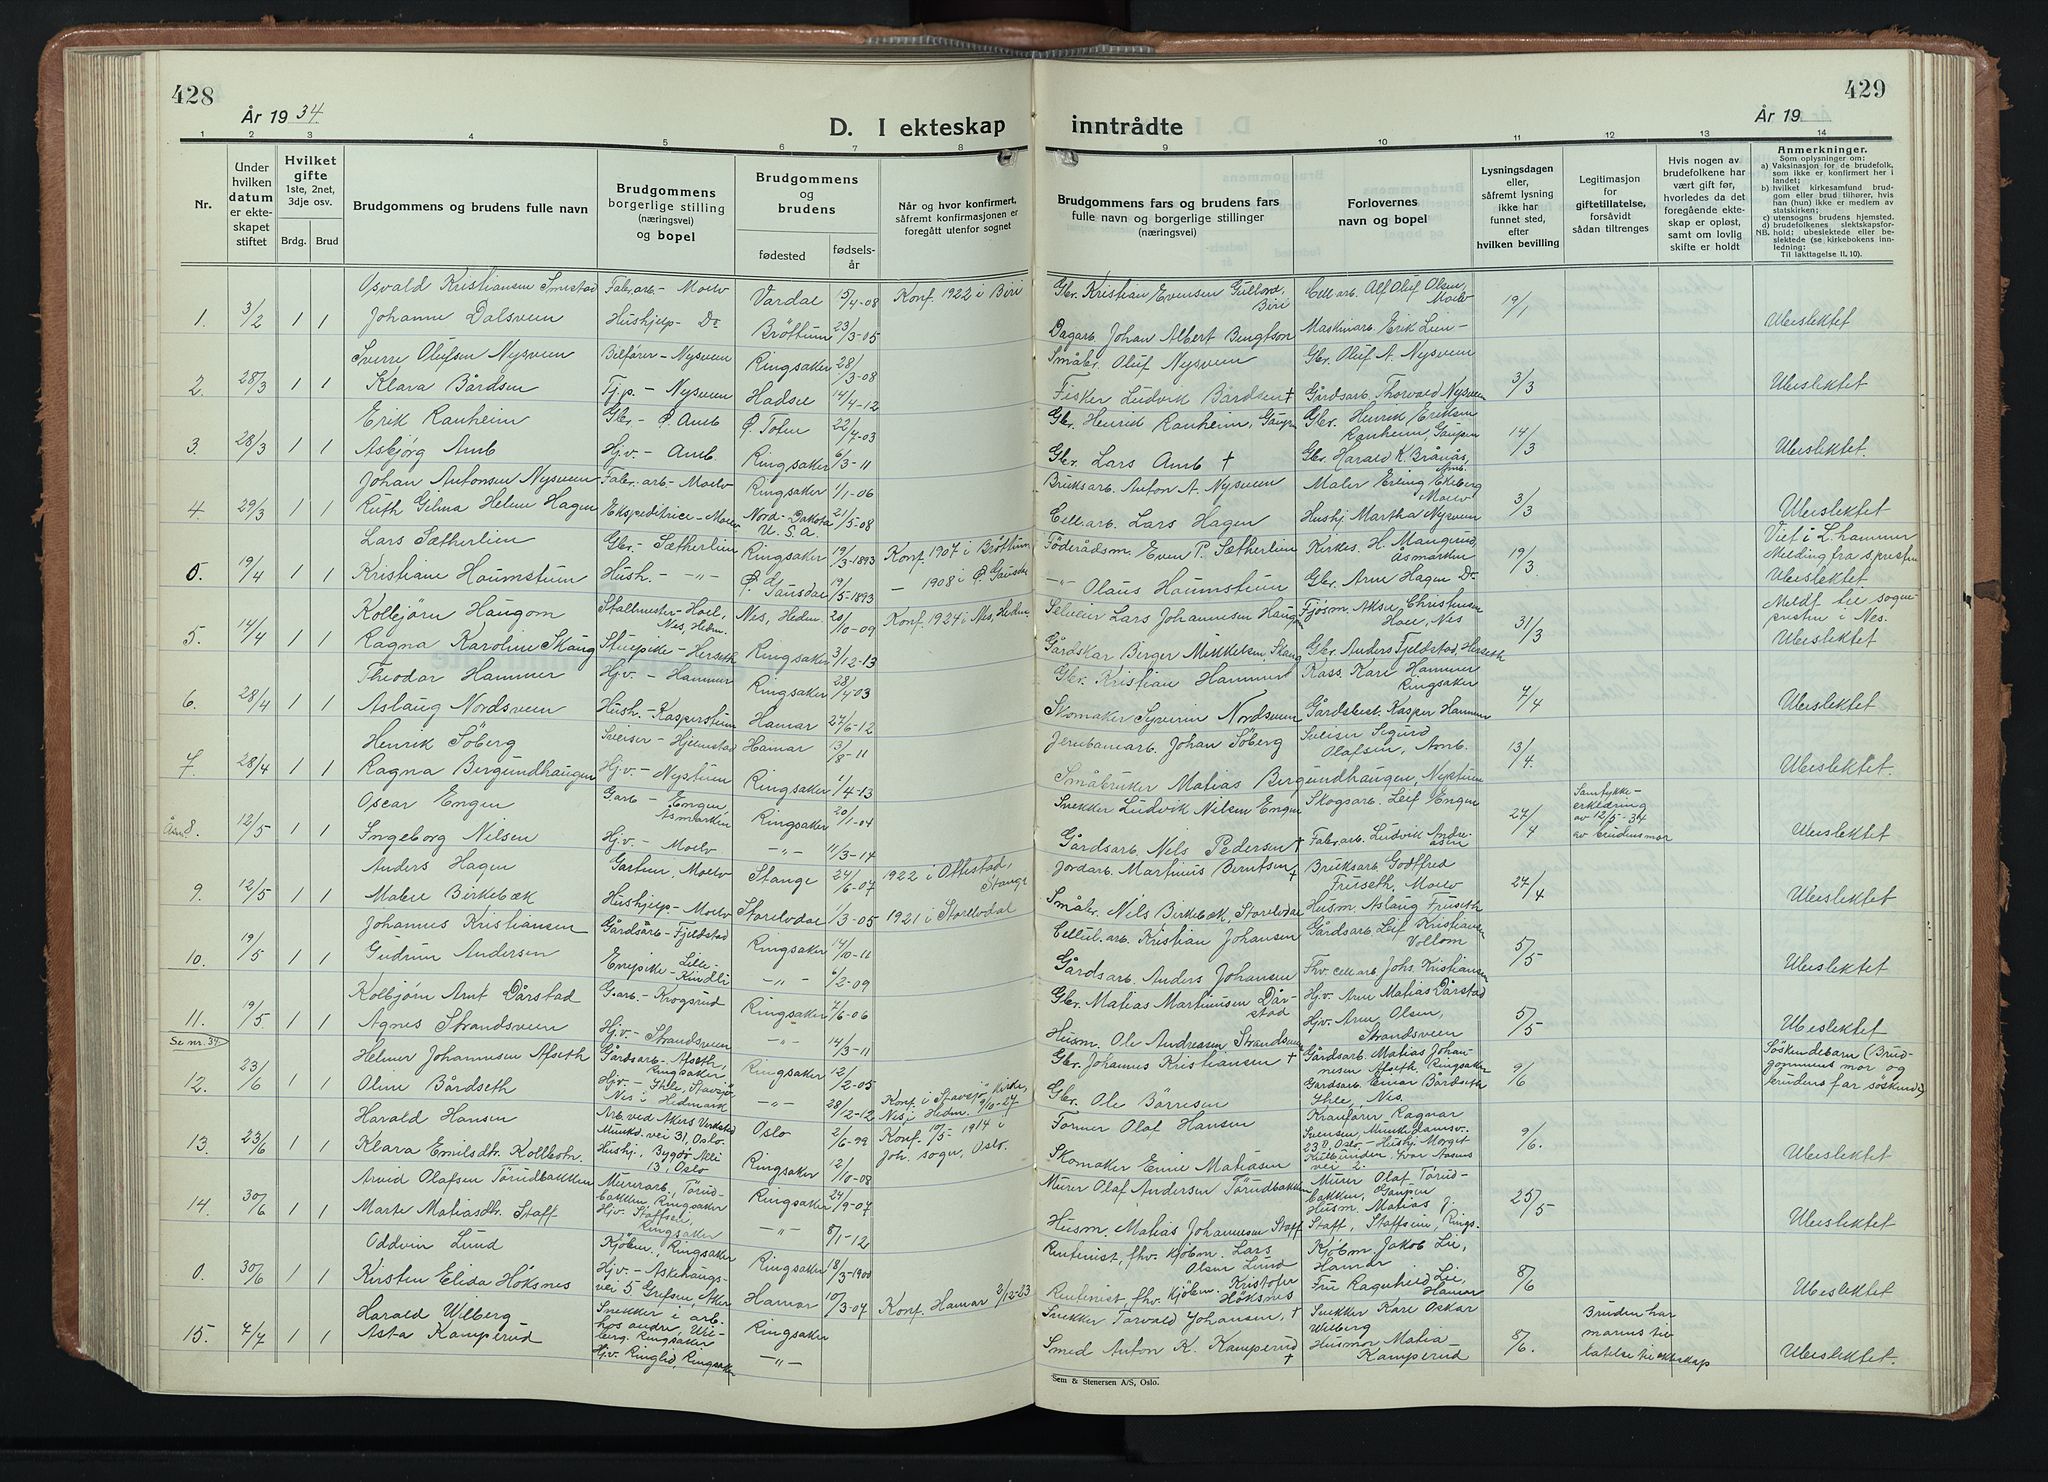 428
År 19 34
D. I ekteskap
1 2 3 4 5 6 7 8
Nr.
Under hvilken datum er ekteskapet stiftet
Hvilket gifte 1ste, 2net, 3dje osv.
Brdg. Brud
Brudgommens og brudens fulle navn
Brudgommens borgerlige stilling (næringsvei) og bopel
Brudgommens og brudens
fødested
fødselsår
Når og hvor konfirmert, såfremt konfirmasjonen er foregått utenfor sognet
Osvald Kristiansen Smestad Fabr.arb. - Moelv Vardal 15/4-08 Konf. 1922 i Biri
1. 3/2 1 1 Johanne Dalsveen Hushjelp - Do Brøttum 23/3-05
Sverre Olufsen Nysveen Bilfører - Nysveen Ringsaker 28/3-08
2. 28/3 1 1 Klara Bårdsen Tj.p. - Nysveen Hadsel 14/4-12
Erik Ranheim Gbr. - Ø. Amb Ø. Toten 22/4-03
3. 28/3 1 1 Asbjørg Amb Hj.v. - Amb. Ringsaker 6/3-11
Johan Antonsen Nysveen Fabr.arb. - Moelv Ringsaker 1/1-06
4. 29/3 1 1 Ruth Gilma Helene Hagen Ekspeditrice - Moelv Nord-Dakota U.S.A. 21/5-08
Lars Sætherlien Gbr. - Sætherlien Ringsaker 19/3-1893 Konf. 1907 i Brøttum
0. 19/4 1 1 Kristiane Haumstuen Hush. - " - Ø. Gausdal 19/5-1893 - 1908 i Ø. Gausdal
Kolbjørn Haugom Stallmester - Hoel, Nes, Hedm. Nes, Hedm. 20/10-09 Konf. 1924 i Nes, Hedm.
5. 14/4 1 1 Ragna Karoline Skaug Stuepike - Herseth Ringsaker 3/12-13
Theodor Hammer Hj.v. - Hammer Ringsaker 28/4-03
6. 28/4 1 1 Aslaug Nordsveen Hush. - Kasperstuen Hamar 27/6-12
Henrik Söberg Sveiser - Hjelmstad Hamar 13/8-11
7. 28/4 1 1 Ragna Bergundhaugen Hj.v. - Nystuen Ringsaker 1/4-13
Oscar Engen G.arb - Engen Åsmarken Ringsaker 20/1-04
Åsm. 8. 12/5 1 1 Ingeborg Nilsen Hj.v. - Moelv - " - 11/3-14
Anders Hagen Gartner, Moelv Stange 24/6-07 1922 i Ottestad, Stange
9. 12/5 1 1 Malre Birkebæk Hushjelp - Moelv Storelvdal 1/3-05 1921 i Storelvdal
Johannes Kristiansen Gårdsarb - Fjeldstad Ringsaker 14/10-11
10. 19/5 1 1 Gudrun Andersen Enepike - Lille-Kindli - " - 6/2-09
Kolbjørn Arnt Dårstad G.arb - Krogsrud Ringsaker 7/6-06
11. 19/5 1 1 Agnes Strandsveen Hj.v. - Strandsveen - " - 14/3-11
Se nr. 34
Helmer Johannesen Afseth Gårdsarb. - Afseth, Ringsaker Ringsaker 12/2-05
12. 23/6 1 1 Oline Bårdseth Hj.v. - Ihle, Stavsjö, Nes i Hedmark - " - 28/12-12 Konf. i Stavsjö Kirke, Nes i Hedm. 9/10-27
Harald Hansen Arb. ved Akers Verksted Munkd.vei 31, Oslo. Oslo 2/6-99 Konf. 10/5-1914 i Joh. sogn, Oslo.
13. 23/6 1 1 Klara Emilsdtr. Kollbotn. Hushj., Bygdø Alle 13, Oslo Ringsaker 2/10-08
Arvid Olafsen Törudbakken Murerarb., Törudbakken, Ringsaker Ringsaker 24/9-07
14. 30/6 1 1 Marte Matiasdtr. Staff Hj.v. Staffsen, Ringsaker - " - 8/1-12
Oddvin Lund Kjöbm., Ringsaker Ringsaker 18/3-1900
0. 30/6 1 1 Kirsten Elida Höksnes Hj.v. - Askehaugsvei 5, Grefsen, Aker Hamar 10/3-04 Konf. Hamar 2/12-23
Harald Wilberg Snekker i arb. hos andre, Wilberg, Ringsaker Ringsaker
15. 7/7 1 1 Asta Kamperud Hj.v. Ringlid, Ringsaker - " -
429
År 19
inntrådte
9 10 11 12 13 14
Brudgommens fars og brudens fars fulle navn og borgerlige stillinger (næringsvei)
Forlovernes navn og bopel
Lysningsdagen eller, såfremt lysning ikke har funnet sted, efter hvilken bevilling
Legitimasjon for giftetillatelse, forsåvidt sådan tiltrenges
Hvis nogen av brudefolkene har vært gift før, hvorledes da det foregående ekteskap er opløst, samt om lovlig skifte er holdt
Anmerkninger.
Som oplysninger om:
a) Vaksinasjon for de brudefolk, som ikke er konfirmert her i landet;
b) hvilket kirkesamfund brudgom eller brud tilhører, hvis han (hun) ikke er medlem av statskirken;
c) utensogns brudens hjemsted.
d) brudefolkenes slektskapsforhold; ubeslektede eller beslektede (se kirkebokens innledning:
NB.
Til Iakttagelse II. 10).
Gbr. Kristian Evensen Gullord, Biri Cell.arb. Alf Oluf Olsen, Moelv 19/1
Dagarb. Johan Albert Bengtson Maskinarb. Erik Lien - Ubeslektet
Småbr. Oluf Nysveen Gbr. Oluf A. Nysveen 3/3
Fisker Ludvik Bårdsen † Gårdsarb. Thorvald Nysveen Ubeslektet
Gbr. Henrid Ranheim, Gaupen Gbr. Henrik Eriksen Ranheim, Gaupen 14/3
Gbr. Lars Amb † Gbr. Harald K. Brånås, Amb. Ubeslektet.
Bruksarb. Anton A. Nysveen Maler Erling Ekeberg Moelv 3/3
Cell.arb. Lars Hagen Hushj. Martha Nysveen Ubeslektet
Föderådsm. Even P. Sætherlien Kirkes. H. Mangrud, Åsmarken 19/3 Viet i L.hammer Melding fra s.presten
- " - Olaus Haumstuen Gbr. Arne Hagen Do Ubeslektet
Selveier Lars Johannesen Haugom Fjøsm. Aksel Christensen Hoel, Nes 31/3 Meldt til sognepresten i Nes.
Gårdskar Berger Mikkelsen Skaug Gbr. Anders Fjeldstad, Herseth Ubeslektet
Gbr. Kristian Hammer Kass. Kari Hammer Ringsaker 7/4
Skomaker Syverin Nordsveen Gårdsbest. Kasper Hammer Ubeslektet
Jernbanearb. Johan Söberg Sveiser Sigurd Olafsen, Amb. 13/4
Småbruker Matias Bergundhaugen, Nystuen Ubeslektet.
Snekker Ludvik Nilsen Engen Skogsarb. Leif Engen 27/4 Samtykkeerklæring av 12/5-34 av brudens mor
Gårdsarb. Nils Pedersen † Fabr.arb. Ludvik Andreasen Ubeslektet
Jordarb. Martinius Berntsen † Bruksarb. Godtfred Fruseth, Moelv 27/4
Småbr. Nils Birkebæk, Storelvdal Husm. Aslaug Fruseth Ubeslektet
Cellul.arb. Kristian Johansen Gårdsarb. Leif Kristiansen Vollom 5/5
Gårdsarb. Anders Johansen Fhv. cell.arb. Johs. Kristiansen Ubeslektet
Gbr. Matias Martinusen Dårstad Hj.v. Arne Matias Dårstad 5/5
Husm. Ole Andreasen Strandsveen Hj.v. Arne Olsen, Strandsveen Ubeslektet
Gbr. Johannes Kristiansen † Gårdsarb. Matias Johannesen Afseth, Ringsaker 9/6 Söskendebarn (Brudgommens mor og brudens far söskende)
Gbr. Ole Börresen Gårdsarb. Einar Bårdseth Ihle, Nes.
Former Olaf Hansen Kranförer Ragnar Svensen, Munkedamsv. 23 II, Oslo - Hushj. Margit Kulblinder, Ivar Aasens vei 2. 9/6.
Skomaker Emil Matiasen Ubeslektet
Murer Olaf Andersen Törudbakken Murer Olaf Törudbakken, Gaupen 25/5
Husm. Matias Johannesen Staff Husm. Matias J. Staff, Staffsen, Rings. Ubeslektet
Rentenist, fhv. kjöbm. Lars Olsen Lund Kjöbm. Jakob Lie, Hamar 8/6
Rentenist fhv. Kjöbm. Kristofer Höksnes Fru Ragnhild Lie, Hamar Ubeslektet
Snekker Torvald Johansen, † Snekker Kåre Oskar Wilberg 8/6. Bruden har morens tillatelse til ekteskap
Smed Anton K. Kamperud † Husmor Matea Kamperud Ubeslektet.
Sem & Stenersen A/S, Oslo.